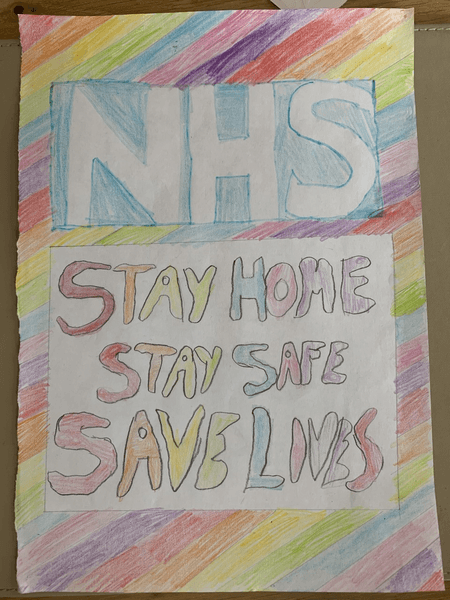 NHS
STAY HOME
STAY SAFE
SAVE LIVES